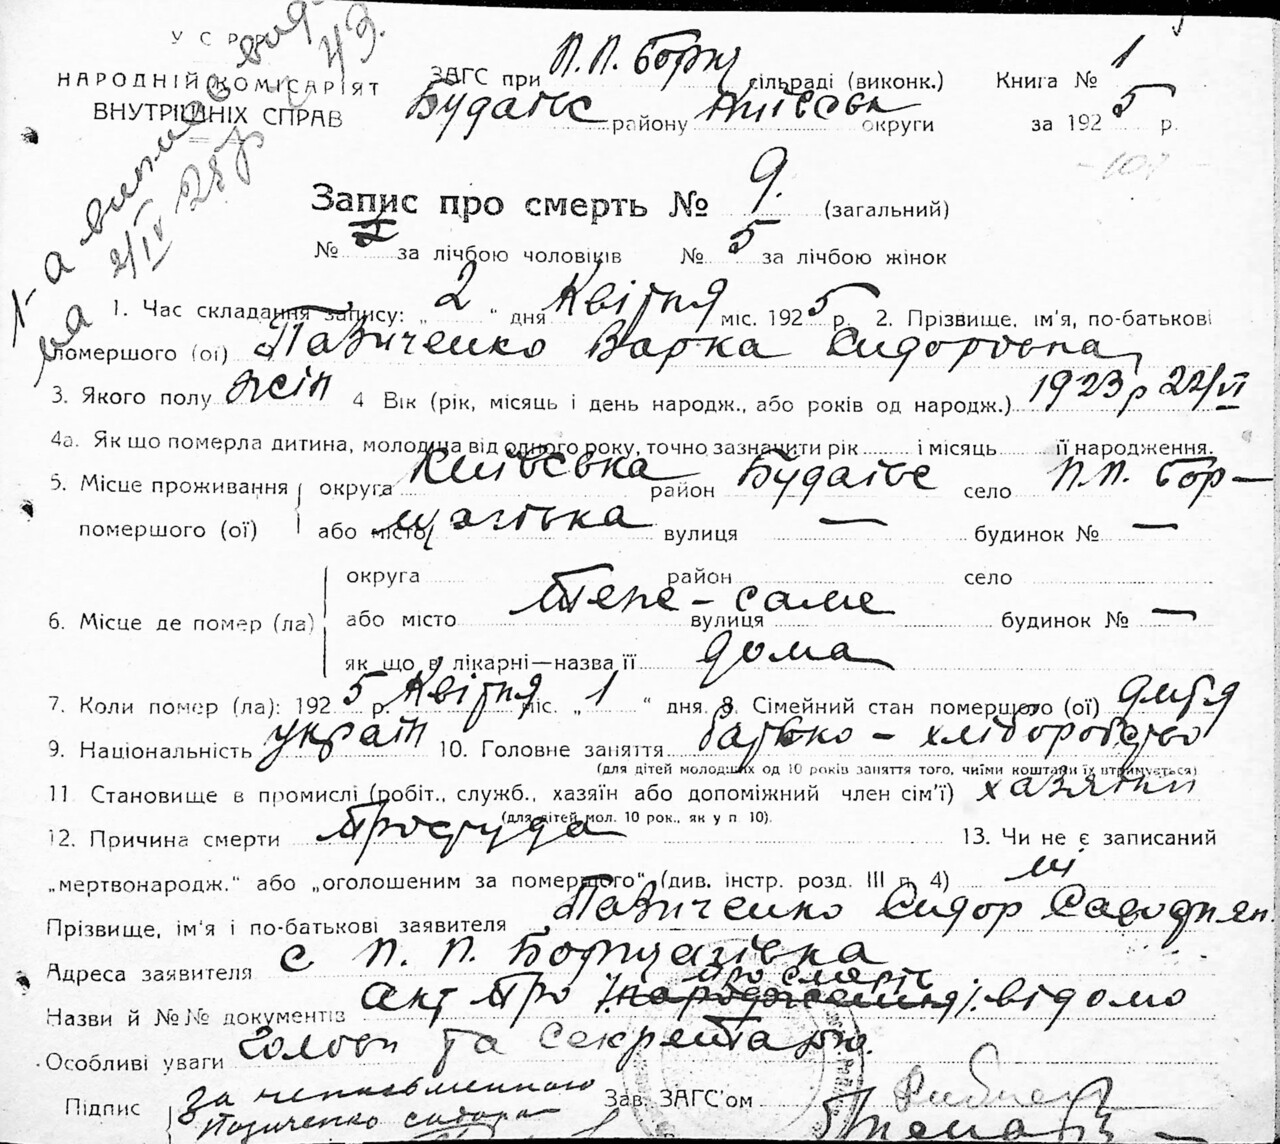 У С Р Р
НАРОДНІЙ КОМІСАРІЯТ
ВНУТРІШНІХ СПРАВ
ЗАГС при П.П. Борщ сільраді (виконк.)
Будаївс району Київськ округи
Книга № 1
за 1925 р.
Запис про смерть № 9. (загальний)
№ за лічбою чоловіків № 5 за лічбою жінок
1. Час складання запису: „ 2 “ дня Квітня міс. 1925 р. 2. Прізвище, ім'я, по-батькові
помершого (ої) Пазиченко Варка Сидоровна
3. Якого полу жін 4 Вік (рік, місяць і день народж., або років од народж.) 1923 р 22/VI
4а. Як що померла дитина, молодша від одного року, точно зазначити рік і місяць її народження.
5. Місце проживання округа Київська район Будаївс село П.П. Бор-
помершого (ої) або місто щагівка вулиця — будинок № —
округа район село
6. Місце де помер (ла) або місто Тепе-саме вулиця будинок № —
як що в лікарні—назва її дома
7. Коли помер (ла): 1925 р. Квітня міс. „ 1 “ дня. 8. Сімейний стан помершого (ої)
9. Національність україн 10. Головне заняття батько - хліборобство
(для дітей молодших од 10 років заняття того, чиїми коштами їх втримується)
11 Становище в промислі (робіт., служб., хазяїн або допоміжний член сім'ї) хазяїн
(для дітей мол. 10 рок., як у п 10).
12. Причина смерти Простуда 13. Чи не є записаний
„мертвонародж.“ або „оголошеним за помершого“ (див. інстр. розд. III п 4) ні
Прізвище, ім'я і по-батькові заявителя Пазиченко Сидор
Адреса заявителя с П. П. Борщагівка
Назви й №№ документів акт про (народження) про смерть відомо
Особливі уваги Голови та секретарю.
Підпис за неписьменного Зав. ЗАГС'ом
Пазиченко Сидора